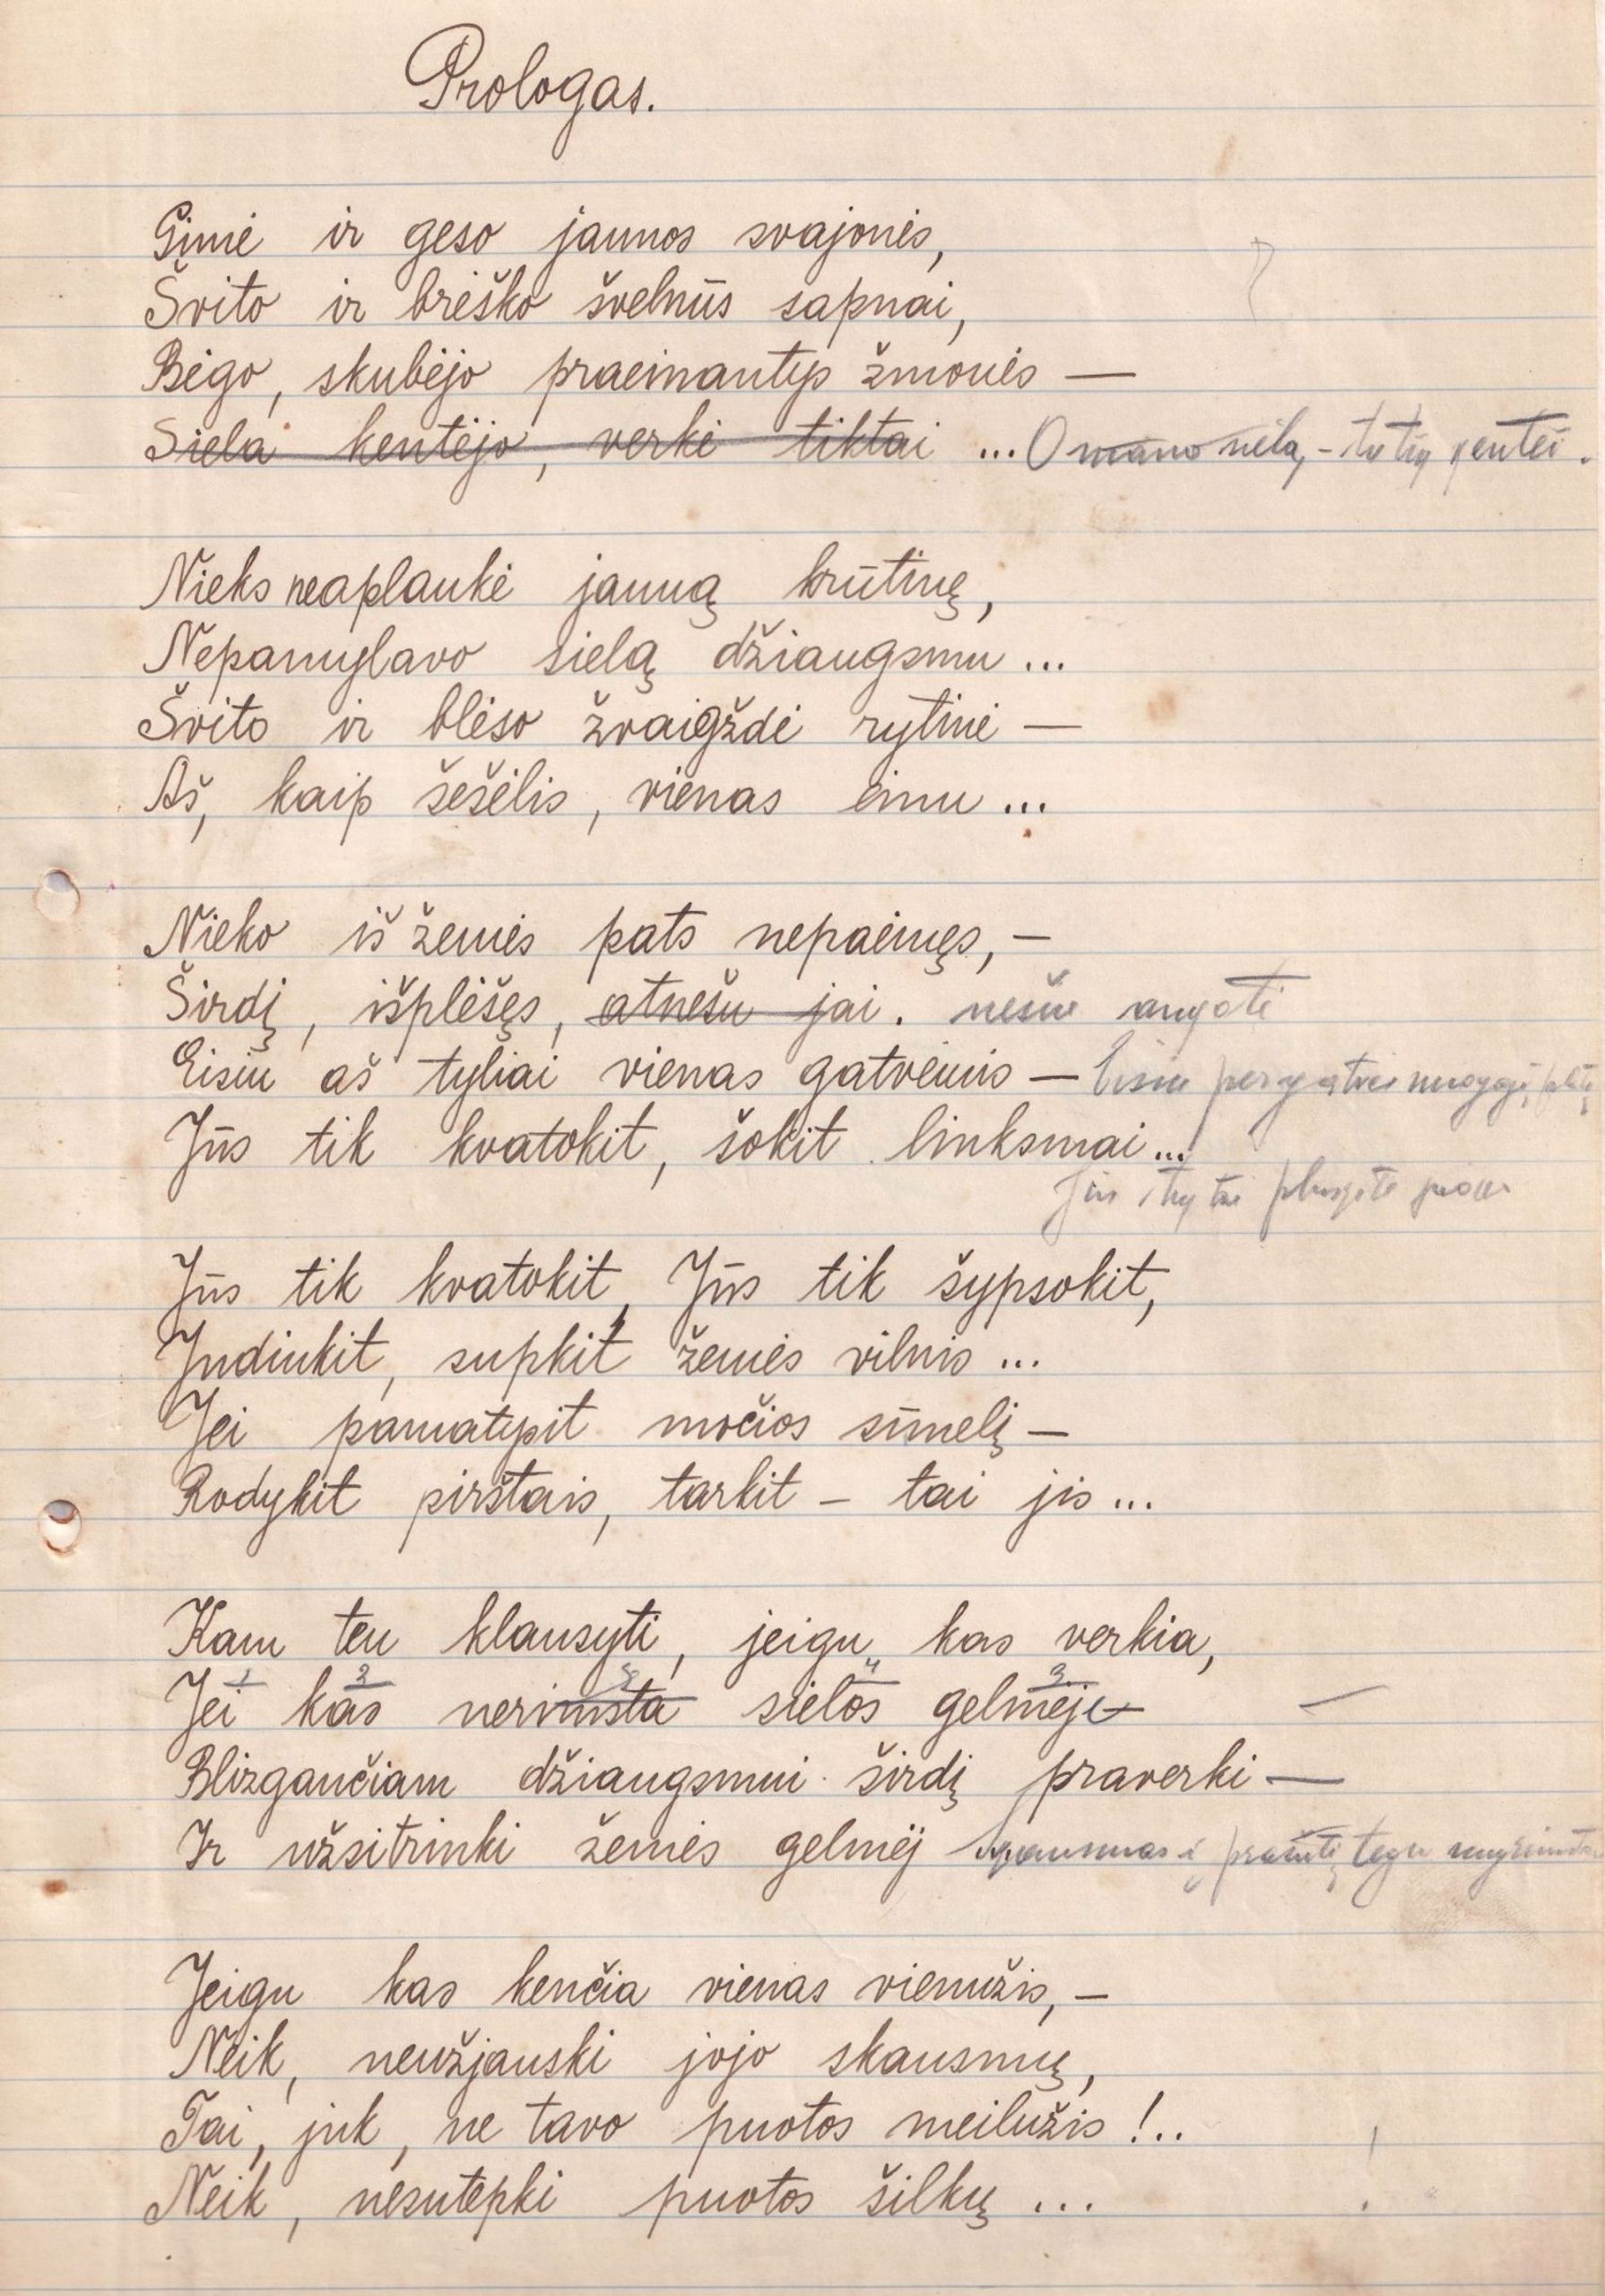 Prologas.
Gimė ir geso jaunos svajonės,
Švito ir brėško švelnūs sapnai,
Bėgo, skubėjo praeinantys žmonės —
Siela kentėjo, verkė tiktai ... O mano siela, -
Nieks neaplankė jauną krūtinę,
Nepamylavo sielą džiaugsmu ...
Švito ir blėso žvaigždė rytinė —
Aš, kaip šešėlis, vienas einu ...
Nieko iš žemės pats nepaėmęs, —
Širdį, išplėšęs, atnešu jai. nešu
Eisiu aš tyliai vienas gatvėmis — Eisiu per gatves
Jūs tik kvatokit, šokit linksmai ...
Jūs
Jūs tik kvatokit, Jūs tik šypsokit,
Judinkit, supkit žemės vilnis ...
Jei pamatysit močios sūnelį —
Rodykit pirštais, tarkit – tai jis ...
Kam ten klausyti, jeigu kas verkia,
Jei kas nerimsta sielos gelmėje
Blizgančiam džiaugsmui širdį praverki —
Ir užsitrinki žemės gelmėj tegu
Jeigu kas kenčia vienas vienužis, —
Neik, neužjauski jojo skausmų,
Tai, juk, ne tavo puotos meilužis !..
Neik, nesutepki puotos šilkų ...